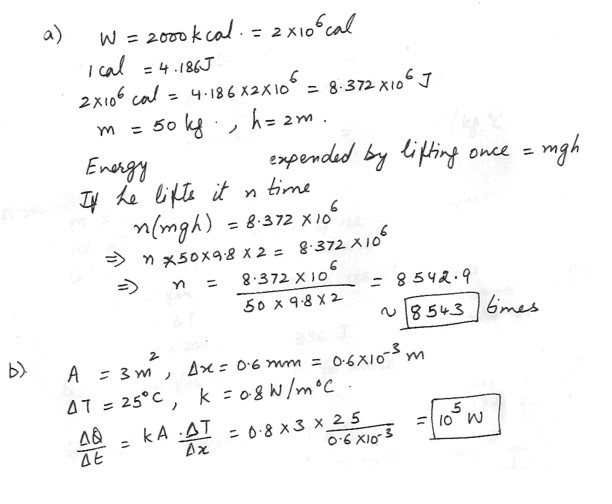 a) W = 2000 kcal. = 2 × 10⁶ cal
1 cal = 4.186J
2×10⁶ cal = 4.186 × 2×10⁶ = 8.372 × 10⁶ J
m = 50 kg., h = 2m.
Energy expended by lifting once = mgh
If he lifts it n time
n(mgh) = 8.372 × 10⁶
⇒ n × 50×9.8 × 2 = 8.372 × 10⁶
⇒ n = 8.372 × 10⁶ / 50 × 9.8 × 2 = 8542.9
~ 8543 times
b) A = 3m², Δx = 0.6 mm = 0.6×10⁻³ m
ΔT = 25°C, k = 0.8 W/m°C.
ΔQ/Δt = kA . ΔT/Δx = 0.8 × 3 × 25/0.6 × 10⁻³ = 10⁵ W